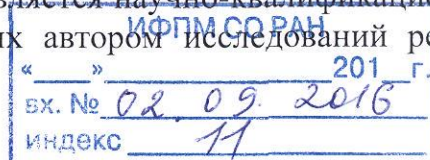 является научно-квалификацио
их автором исследований ре
ИФПМ СО РАН
«___»__________201__г.
вх. № 02 09. 2016
индекс 11